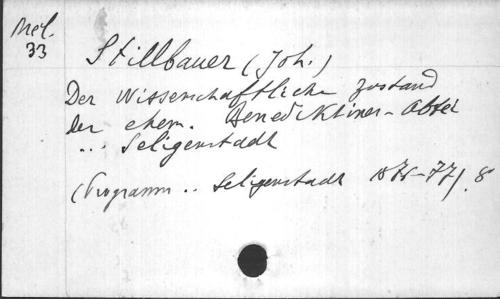 Mél.
33
Stillbauer (Joh.)
Der wissenschaftliche Zustand
der ehem. Benediktiner-Abtei
... Seligenstadt
(Programm .. Seligenstadt 1876-77). 8